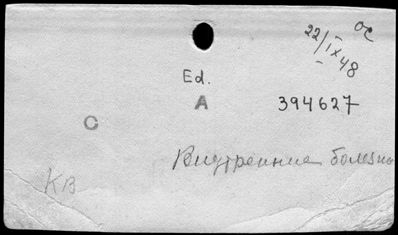 ОС
22/IX48
Ed.
A 394627
С
Внутренние болезни
КВ